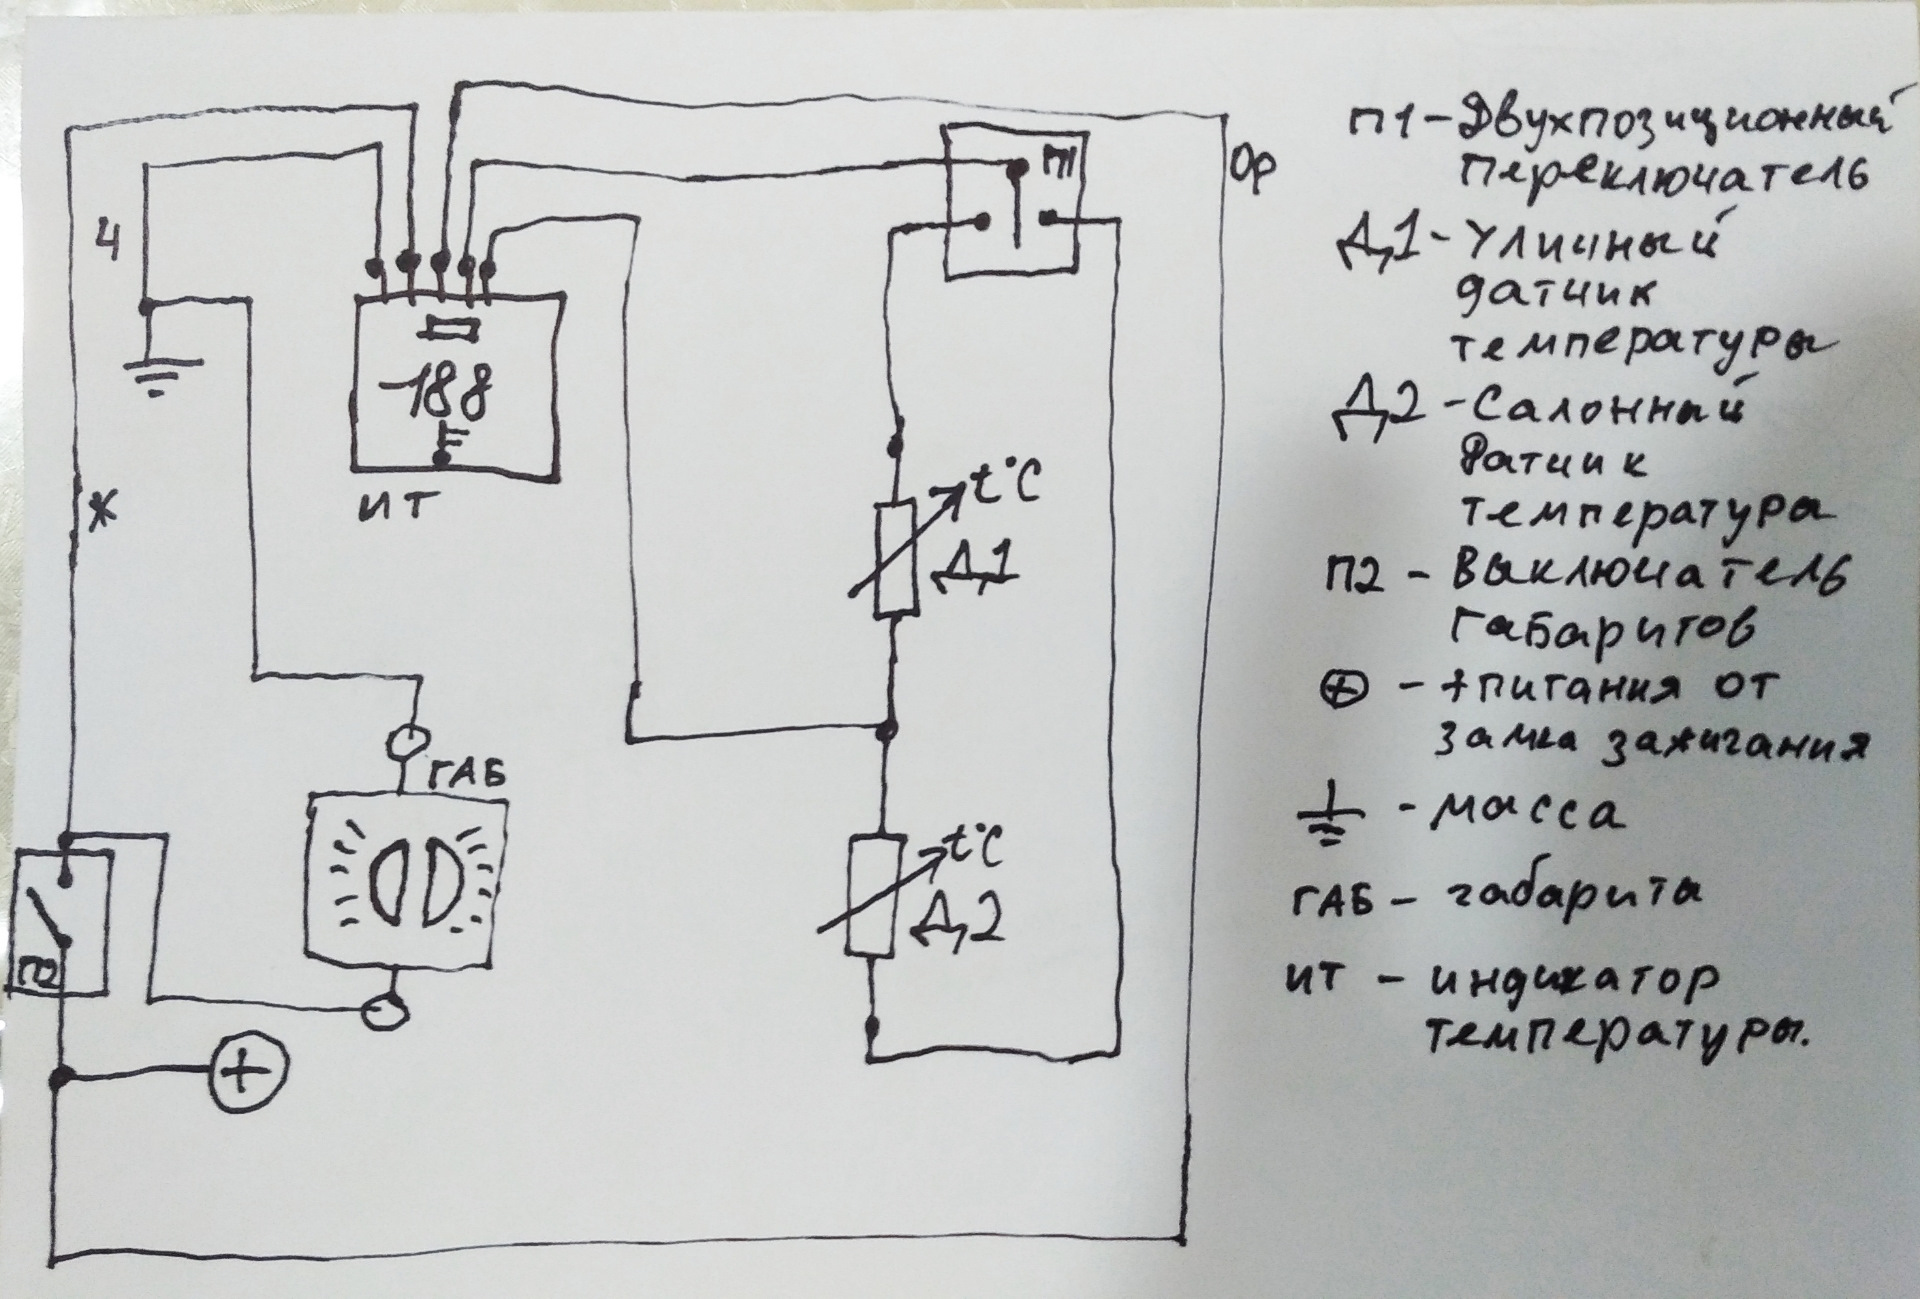 П1 - Двухпозиционный
переключатель
Д1 - Уличный
датчик
температуры
Д2 - Салонный
датчик
температуры
П2 - Выключатель
габаритов
⊕ - + питания от
замка зажигания
⏚ - масса
ГАБ - габариты
ИТ - индикатор
температуры.
П1
Ор
Ч
-188
ИТ
Ж
t°C
Д1
ГАБ
t°C
Д2
П2
+